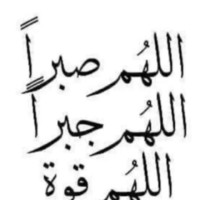 اللهُم صبراً
اللهُم جبراً
اللهُم قوة